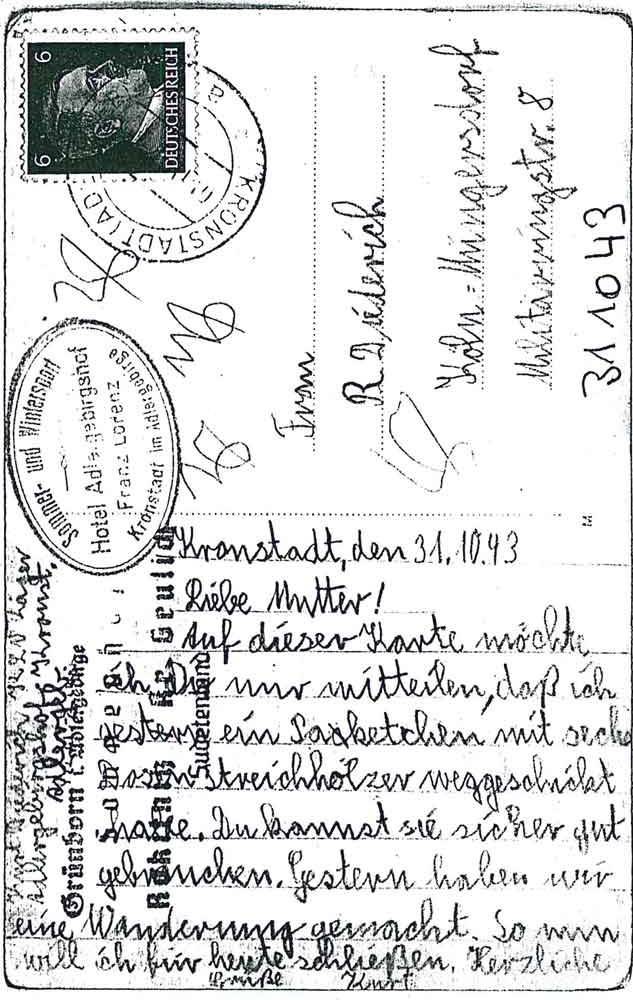 6 6
DEUTSCHES REICH
KRONSTADT (AD
Sommer- und Wintersport
Hotel Adlergebirgshof
Franz Lorenz
Kronstadt im Adlergebirge
Frau
R Diederich
Köln-Müngersdorf
Militärringstr. 8
31 10 43
Kurt Diederich KLV Lager
Adlergebirgshof Kronst.
Adlergeb.
Grünborn i. Adlergebirge
Sudetenland
Kronstadt, den 31.10.43
Liebe Mutter!
Auf dieser Karte möchte
ich Dir nur mitteilen, daß ich
gestern ein Paketchen mit sechs
Dosen Streichhölzer weggeschickt
habe. Du kannst sie sicher gut
gebrauchen. Gestern haben wir
eine Wanderung gemacht. So nun
will ich für heute schließen. Herzliche
Grüße Kurt